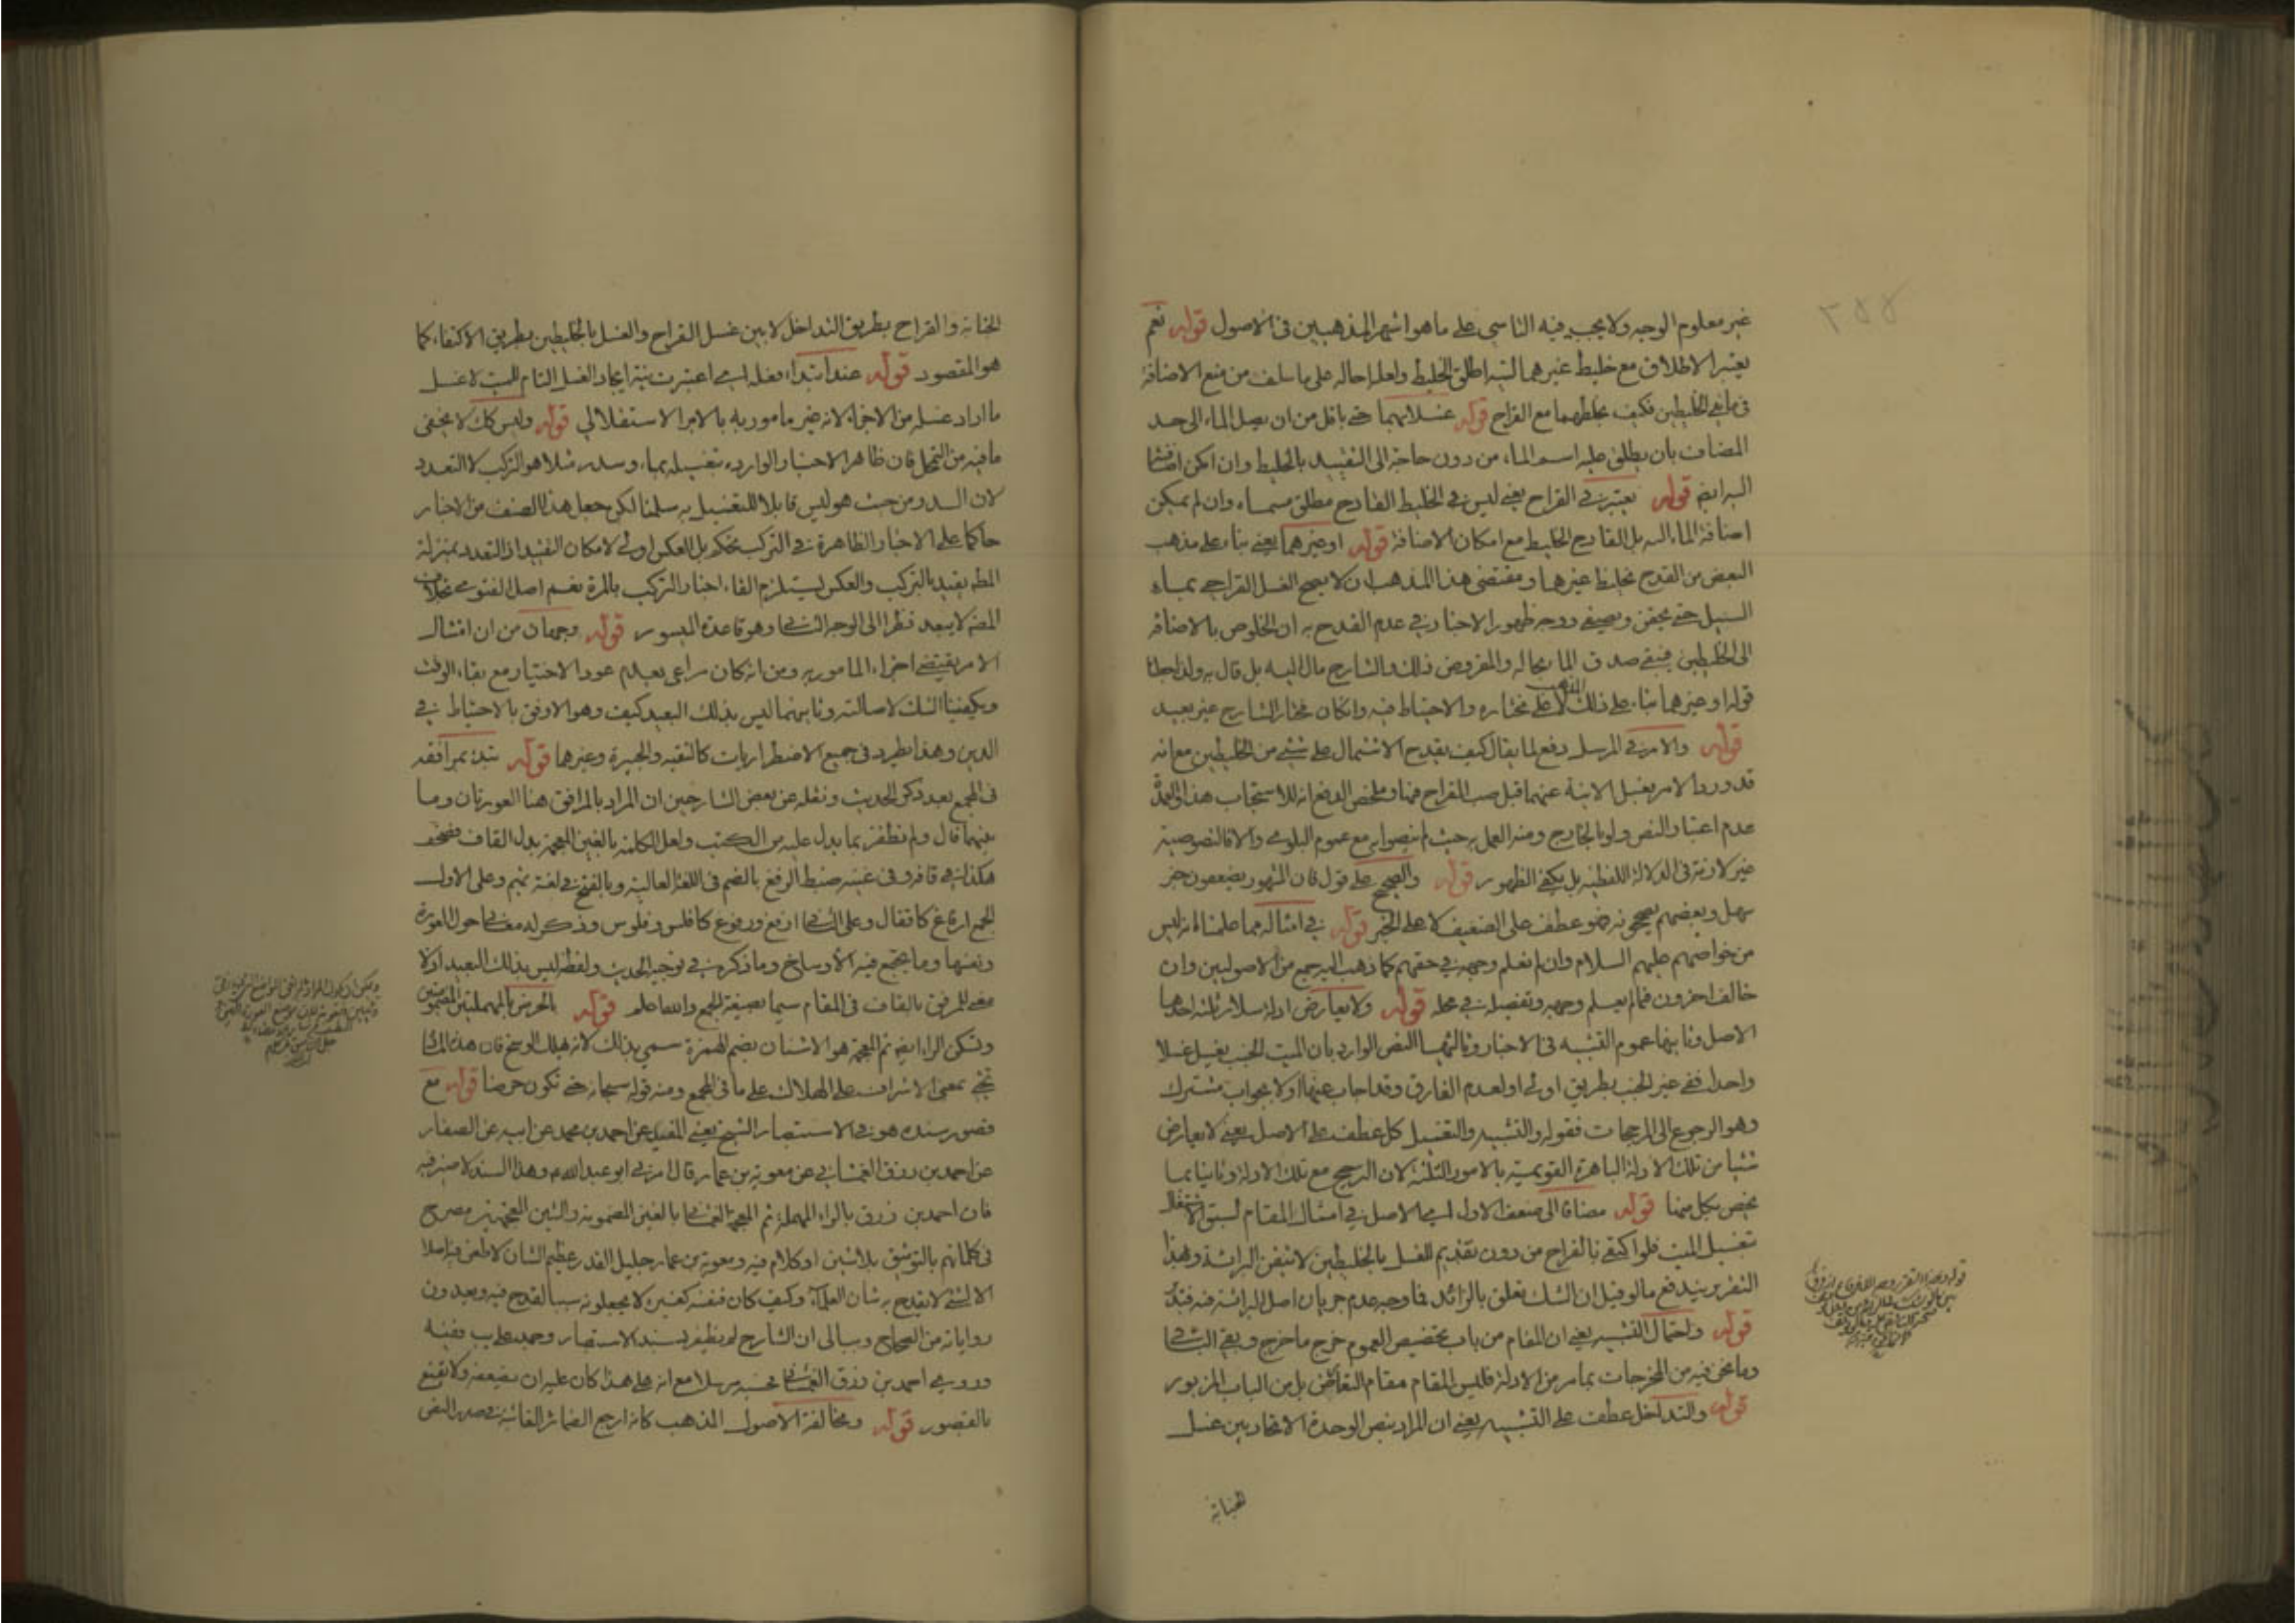 غير معلوم الوجه ولا يجب فيه التاسي على ما هو اشهر المذهبين فى الاصول قوله نعم
يعتبر الاطلاق مع خليط غيرهما اطلق الخليط ولعله احاله على ما سلف من منع الاضافة
فى مائى الخليطين فكيف بخلطهما مع القراح قوله غسلا بهما حتى باقل من ان يصل الماء الى حد
المضاف بان يطلق عليه اسم الماء من دون حاجة الى التقييد بالخليط وان امكن
ايضا قوله يعتبر فى القراح يعنى ليس فى الخليط القادح مطلق مسماه وان لم يمكن
اضافة الماء اليه بل القادح الخليط مع امكان الاضافة قوله او غيرهما يعنى بناء على مذهب
البعض من القدح بخليط غيرهما ومقتضى هذا المذهب ان لا يصح الغسل القراحى بماء
السيل حتى يحقن ويصفى ووجه ظهور الاخبار فى عدم القدح به ان الخلوص بالاضافة
الى الخليطين فيبقى صدق الماء بحاله والمفروض ذلك والشارح مال اليه بل قال به ولذا جعلنا
قوله او غيرهما بناء على ذلك المذهب لا على مختاره والاحتياط فيه وان كان مختار الشارح غير بعيد
قوله والامر فى المرسل دفع لما يقال كيف يقدح الاشتمال على شئ من الخليطين مع انه
قد ورد الامر بغسل الانية عنهما قبل صب القراح فيها وملخص الدفع انه للاستحباب هذا والعمدة
عدم اعتبار النص ولو بالخارج ومنه العمل به حيث لم ينصوا به مع عموم البلوى والا فالنصوصية
غير لازمة فى الدلالة اللفظية بل يكفى الظهور قوله والصحيح على قول فان المشهور يضعفون خبر
سهل وبعضهم يصححونه فهو عطف على الضعيف لا على الخبر قوله فى امثاله مما علمناه انه ليس
من خواصهم عليهم السلام وان لم نعلم وجهه فى حقهم كما ذهب اليه جمع من الاصوليين وان
خالف اخرون فيما لم يعلم وجهه وتفصيله فى محله قوله ولا يعارض ادلة سلار ثلثة احدها
الاصل وثانيها عموم التشبيه فى الاخبار وثالثها النص الوارد بان الميت الجنب يغسل غسلا
واحدا ففى غير الجنب بطريق اولى او لعدم الفارق وقد اجاب عنها اولا بجواب مشترك
وهو الرجوع الى المرجحات فقوله والتشبيه والتغسيل كل عطف على الاصل يعنى لا يعارض
شيئا من تلك الادلة الباهرة القويمية بالامور الثلثة لان الرجحان مع تلك الادلة وثانيا بما
يخص بكل منها قوله مضافا الى ضعف الاول اى الاصل فى امثال المقام لسبق الاشتغال
تغسيل الميت فلو اكتفى بالقراح من دون تقديم الغسل بالخليطين لا نتيقن البرائة وبهذا
التقرير يندفع ما لو قيل ان الشك تعلق بالزائد فما وجه عدم جريان اصل البرائة فيه فتدبر
قوله واحتمال التشبيه يعنى ان المقام من باب تخصيص العموم خرج ما خرج وبقى الباقى
وما نحن فيه من المخرجات بما مر من الادلة فليس المقام مقام التعارض بل من الباب المزبور
قوله والتداخل عطف على التشبيه يعنى ان المراد بنص الوحدة الاتحاد بين غسل
الجنابة
الجنابة والقراح بطريق التداخل لا بين غسل القراح والغسل بالخليطين بطريق الاكتفاء كما
هو المقصود قوله عند ابتداء فعله اى اعتبرت نية ايجاد الغسل التام للميت لا غسل
ما اراد غسله من الاجزاء لانه غير مامور به بالامر الاستقلالي قوله وليس كك لا يخفى
ما فيه من التمحل فان ظاهر الاخبار الواردة بتغسيله بماء وسدر مثلا هو التركب لا التعدد
لان السدر من حيث هو ليس قابلا للتغسيل به سلمنا لكن جعل هذا الصنف من الاخبار
حاكما على الاخبار الظاهرة فى التركب تحكم بل العكس اولى لامكان التقييد اذ التعدد بمنزلة
المط يقيد بالتركب والعكس يستلزم الغاء اخبار التركب بالمرة نعم اصل الفتوى بخلاف
المض لا يبعد نظرا الى الوجه الثانى وهو قاعدة الميسور قوله وجهان من ان امتثال
الامر يقتضى اجزاء المامور به ومن انه كان مراعى بعدم عود الاختيار مع بقاء الوقت
ويكفينا الشك لاصالته وثانيهما ليس بذلك البعيد كيف وهو الاوفق بالاحتياط فى
الدين وهذا يطرد فى جميع الاضطراريات كالتقية والجبيرة وغيرها قوله تبدء بمرافقه
فى المجمع بعد ذكر الحديث ونقله عن بعض الشارحين ان المراد بالمرافق هنا العورتان وما
بينهما قال ولم نظفر بما يدل عليه من الكتب ولعل الكلمة بالغين المعجمة بدل القاف فصحف
هكذا فى قافه وفى غينه ضبط الرفغ بالضم فى اللغة العالية وبالفتح فى لغة تميم وعلى الاول
الجمع ارفاغ كاقفال وعلى الثانى ارفغ ورفوغ كافلس وفلوس وذكر له معنى حوالى العورة
ونفسها وما يجتمع فيه الاوساخ وما ذكره فى توجيه الحديث ولفظه ليس بذلك البعيد اذ لا
معنى للمرفق بالقاف فى المقام سيما بصيغة الجمع والله اعلم قوله بالحرض بالمهملتين المضمومتين
وتسكن الراء ايضا ثم المعجمة هو الاشنان بضم الهمزة سمي بذلك لانه يهلك الوسخ فان هذه المادة
تجئ بمعنى الاشراف على الهلاك على ما فى المجمع ومنه قوله سبحانه حتى تكون حرضا قوله مع
قصور سنده هو فى الاستبصار الشيخ يعنى المفيد عن احمد بن محمد عن ابيه عن الصفار
عن احمد بن رزق الغمشانى عن معوية بن عمار قال امرنى ابو عبد الله ع وهذا السند لا ضير فيه
فان احمد بن رزق بالراء المهملة ثم المعجمة الغمشانى بالغين المضمومة والشين المعجمة مصرح
فى كلماتهم بالتوثيق بلا شين او كلام فيه ومعوية بن عمار جليل القدر عظيم الشان لا طعن فيه اصلا
الا لشئ لا يقدح به شان العلماء وكيف كان فنفسه كغيره لا يجعلونه سببا لقدح فيه ويعدون
رواياته من الصحاح وببالى ان الشارح لم يظفر بسند الاستبصار وفيه
وروى احمد بن رزق الغمشانى فحسبه مرسلا مع انه على هذا كان عليه ان يضعفه ولا يقنع
بالقصور قوله ومخالفة الاصول المذهب كانه ارجع الضمائر الغائبة فى صدر النص